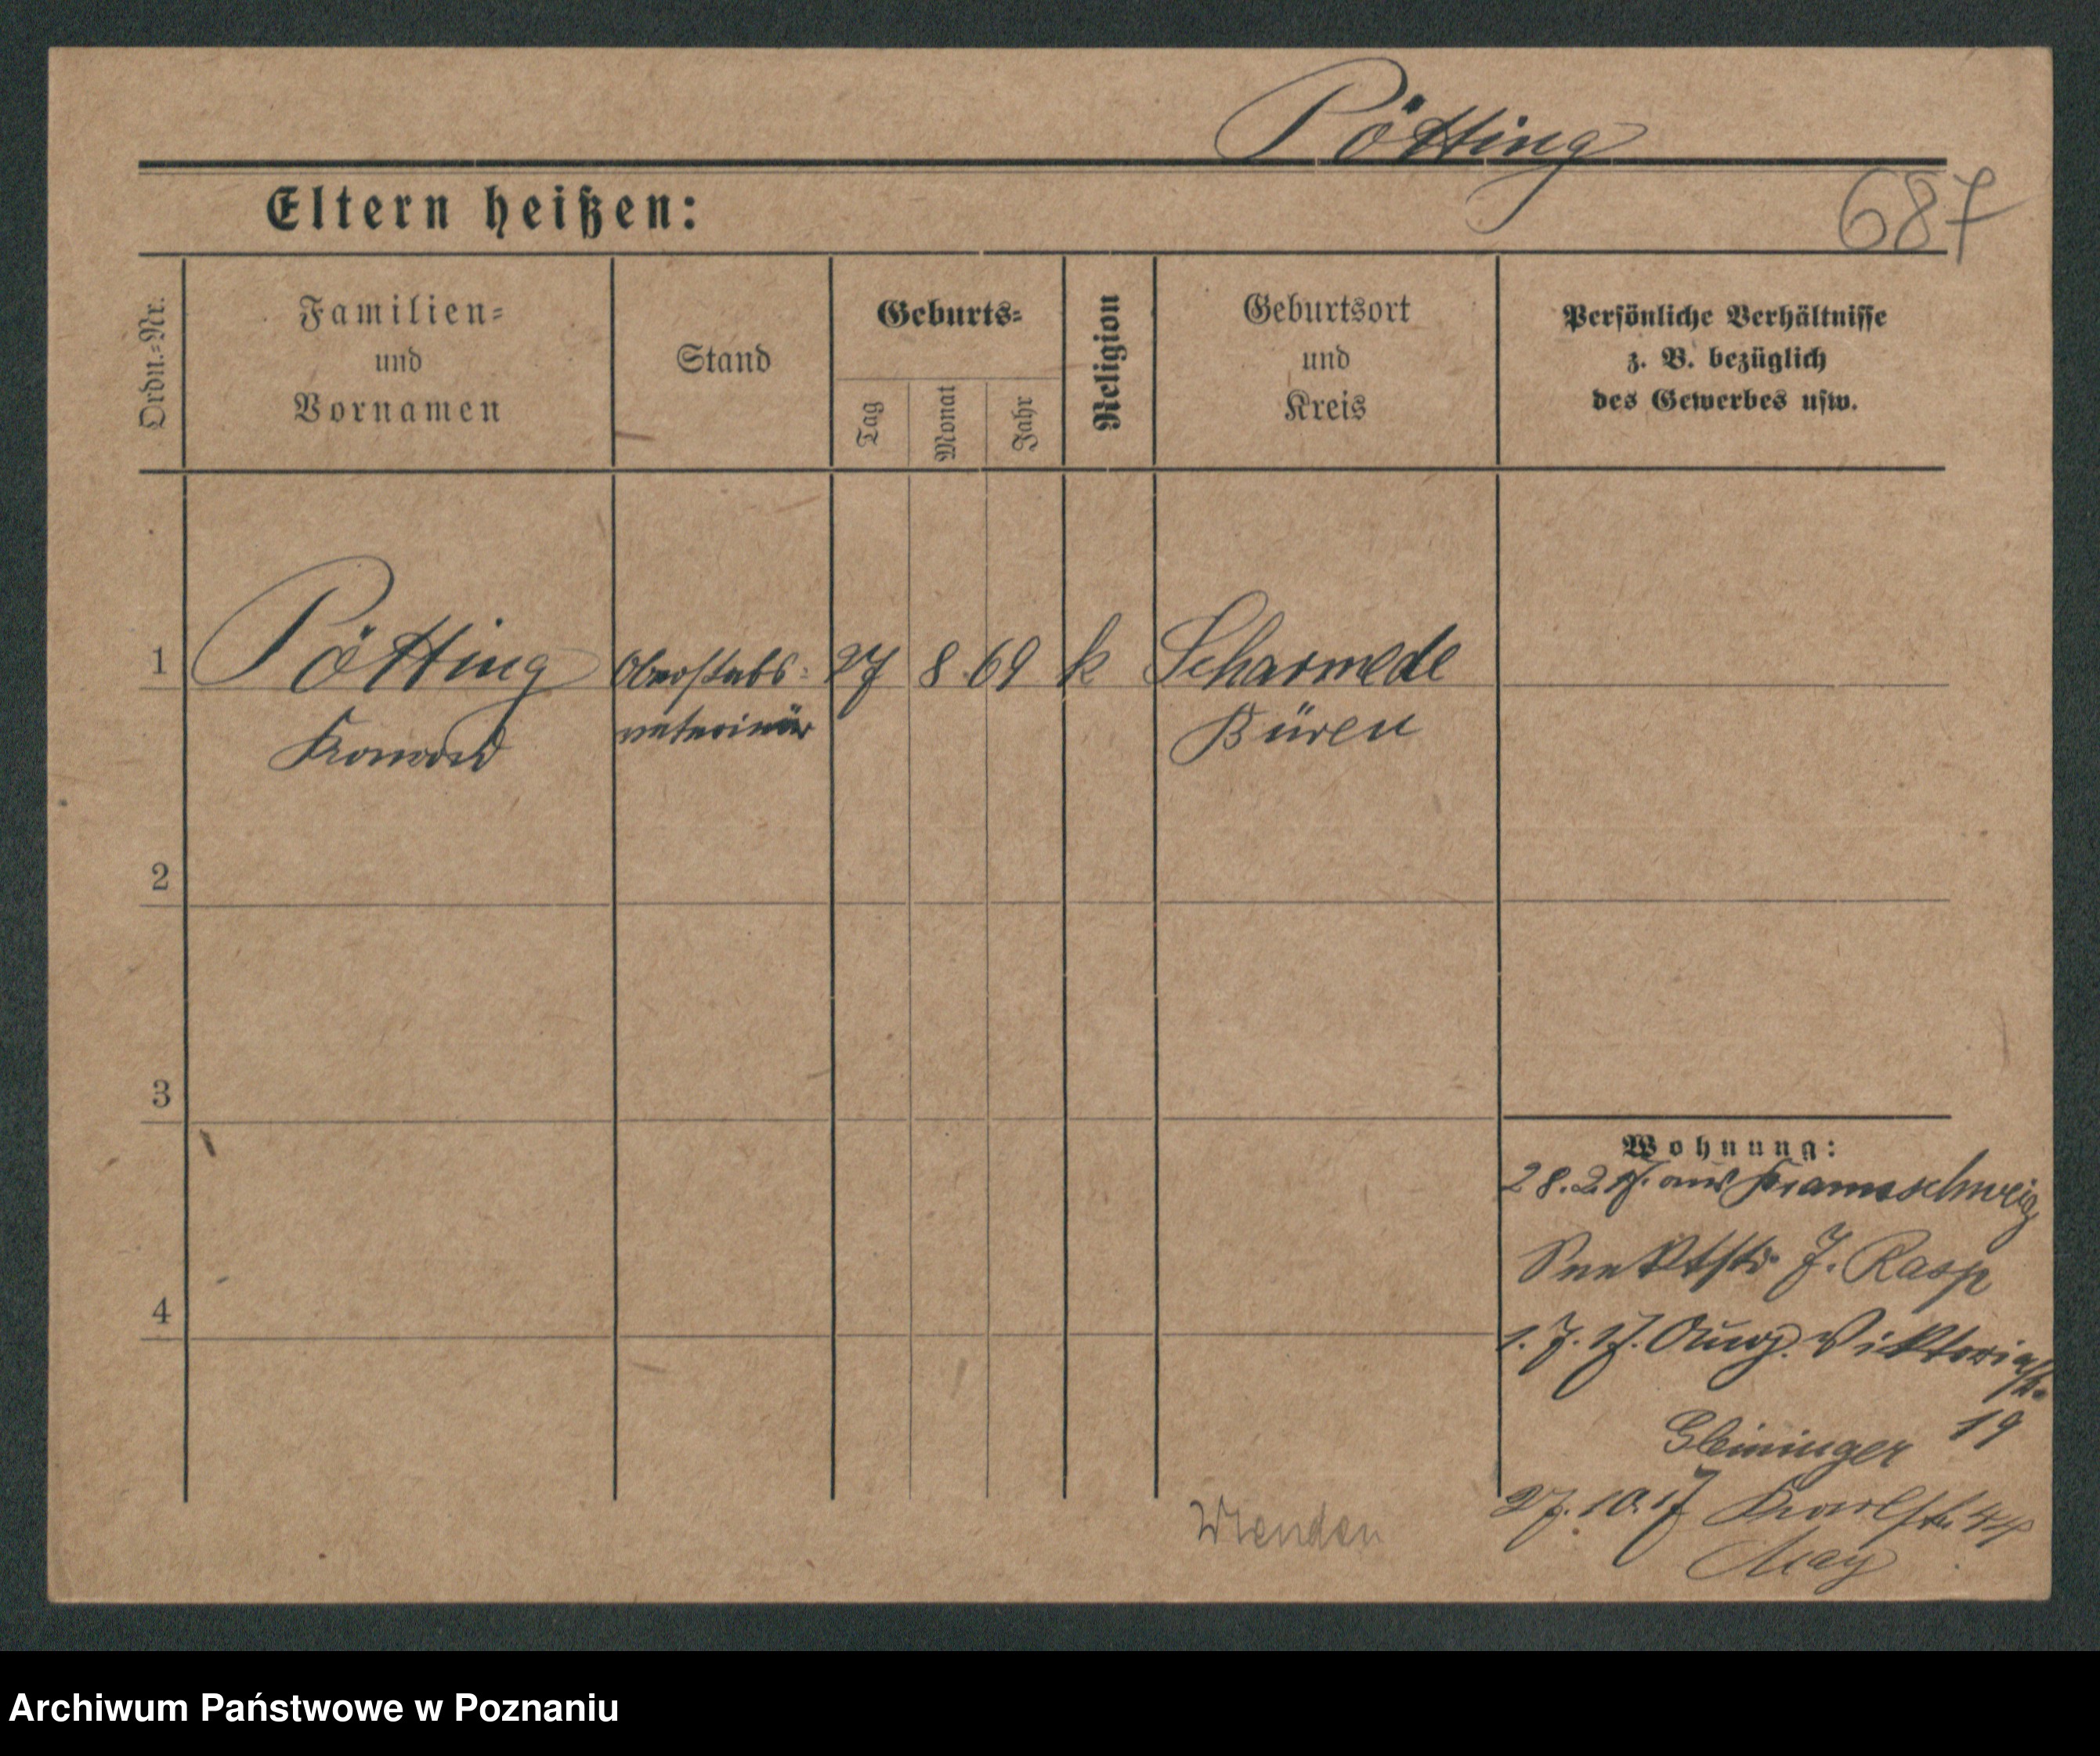 Pötting
Eltern heißen:
687
Ordn.-Nr.
Familien-
und
Vornamen
Stand
Geburts-
Tag
Monat
Jahr
Religion
Geburtsort
und
Kreis
Persönliche Verhältnisse
z. B. bezüglich
des Gewerbes usw.
1
Pötting
Konrad
Oberstabs-
veterinär
27
8
69
k
Scharmede
Büren
2
3
4
Wohnung:
28. 2. 17. aus Braunschweig
7. Rasp
1. 7. 17. Aug. Viktoriastr.
19
Gleininger
27. 10. 17 Karlstr. 44
May
Archiwum Państwowe w Poznaniu